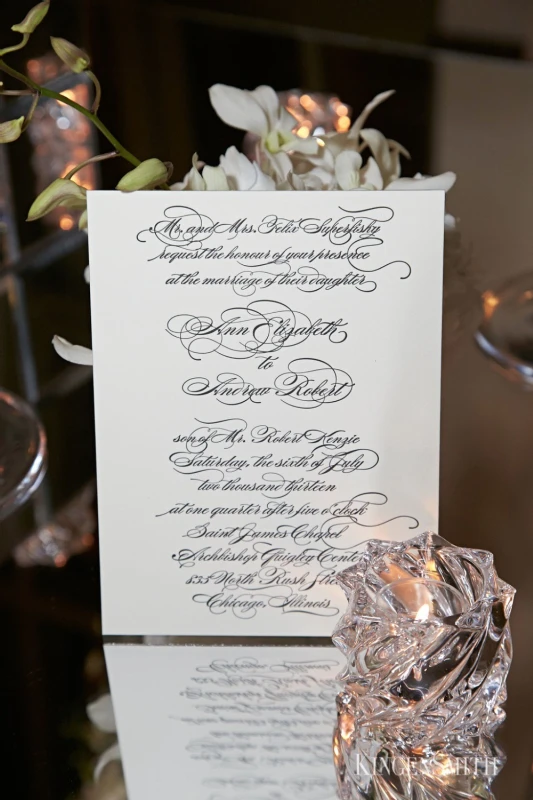 Mr. and Mrs. Felix Superfisky
request the honour of your presence
at the marriage of their daughter
Ann Elizabeth
to
Andrew Robert
son of Mr. Robert Kenzie
Saturday, the sixth of July
two thousand thirteen
at one quarter after five o'clock
Saint James Chapel
Archbishop Quigley Center
835 North Rush
Chicago, Illinois